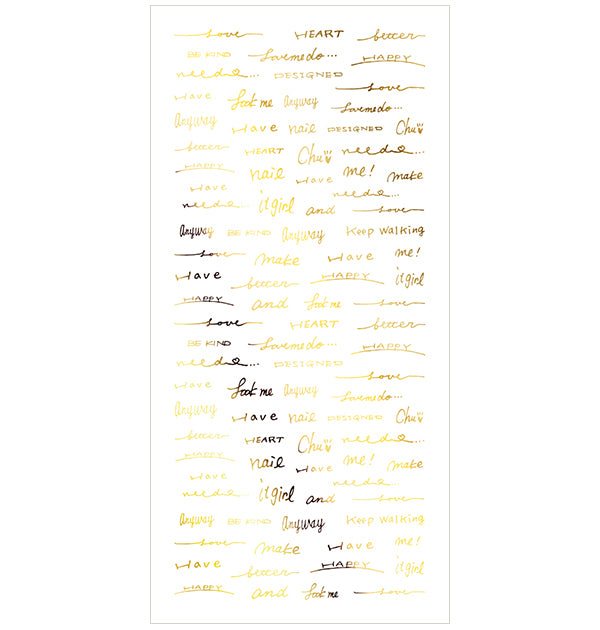 love HEART better
BE KIND Lovemedo... HAPPY
need... DESIGNED
love
Have look me Anyway Lovemedo...
Anyway Have nail DESIGNED Chu
better HEART Chu need...
HAPPY nail Have me! make
Have need...
need... it girl and love
Anyway BE KIND Anyway Keep Walking
love make Have me!
Have better HAPPY it girl
HAPPY and look me love
love HEART better
BE KIND Lovemedo... HAPPY
need... DESIGNED
love
Have look me Anyway Lovemedo...
Anyway Have nail DESIGNED Chu
better HEART Chu need...
HAPPY nail Have me! make
Have
need... it girl and love
Anyway BE KIND Anyway Keep Walking
love make Have me!
better HAPPY it girl
HAPPY and look me love